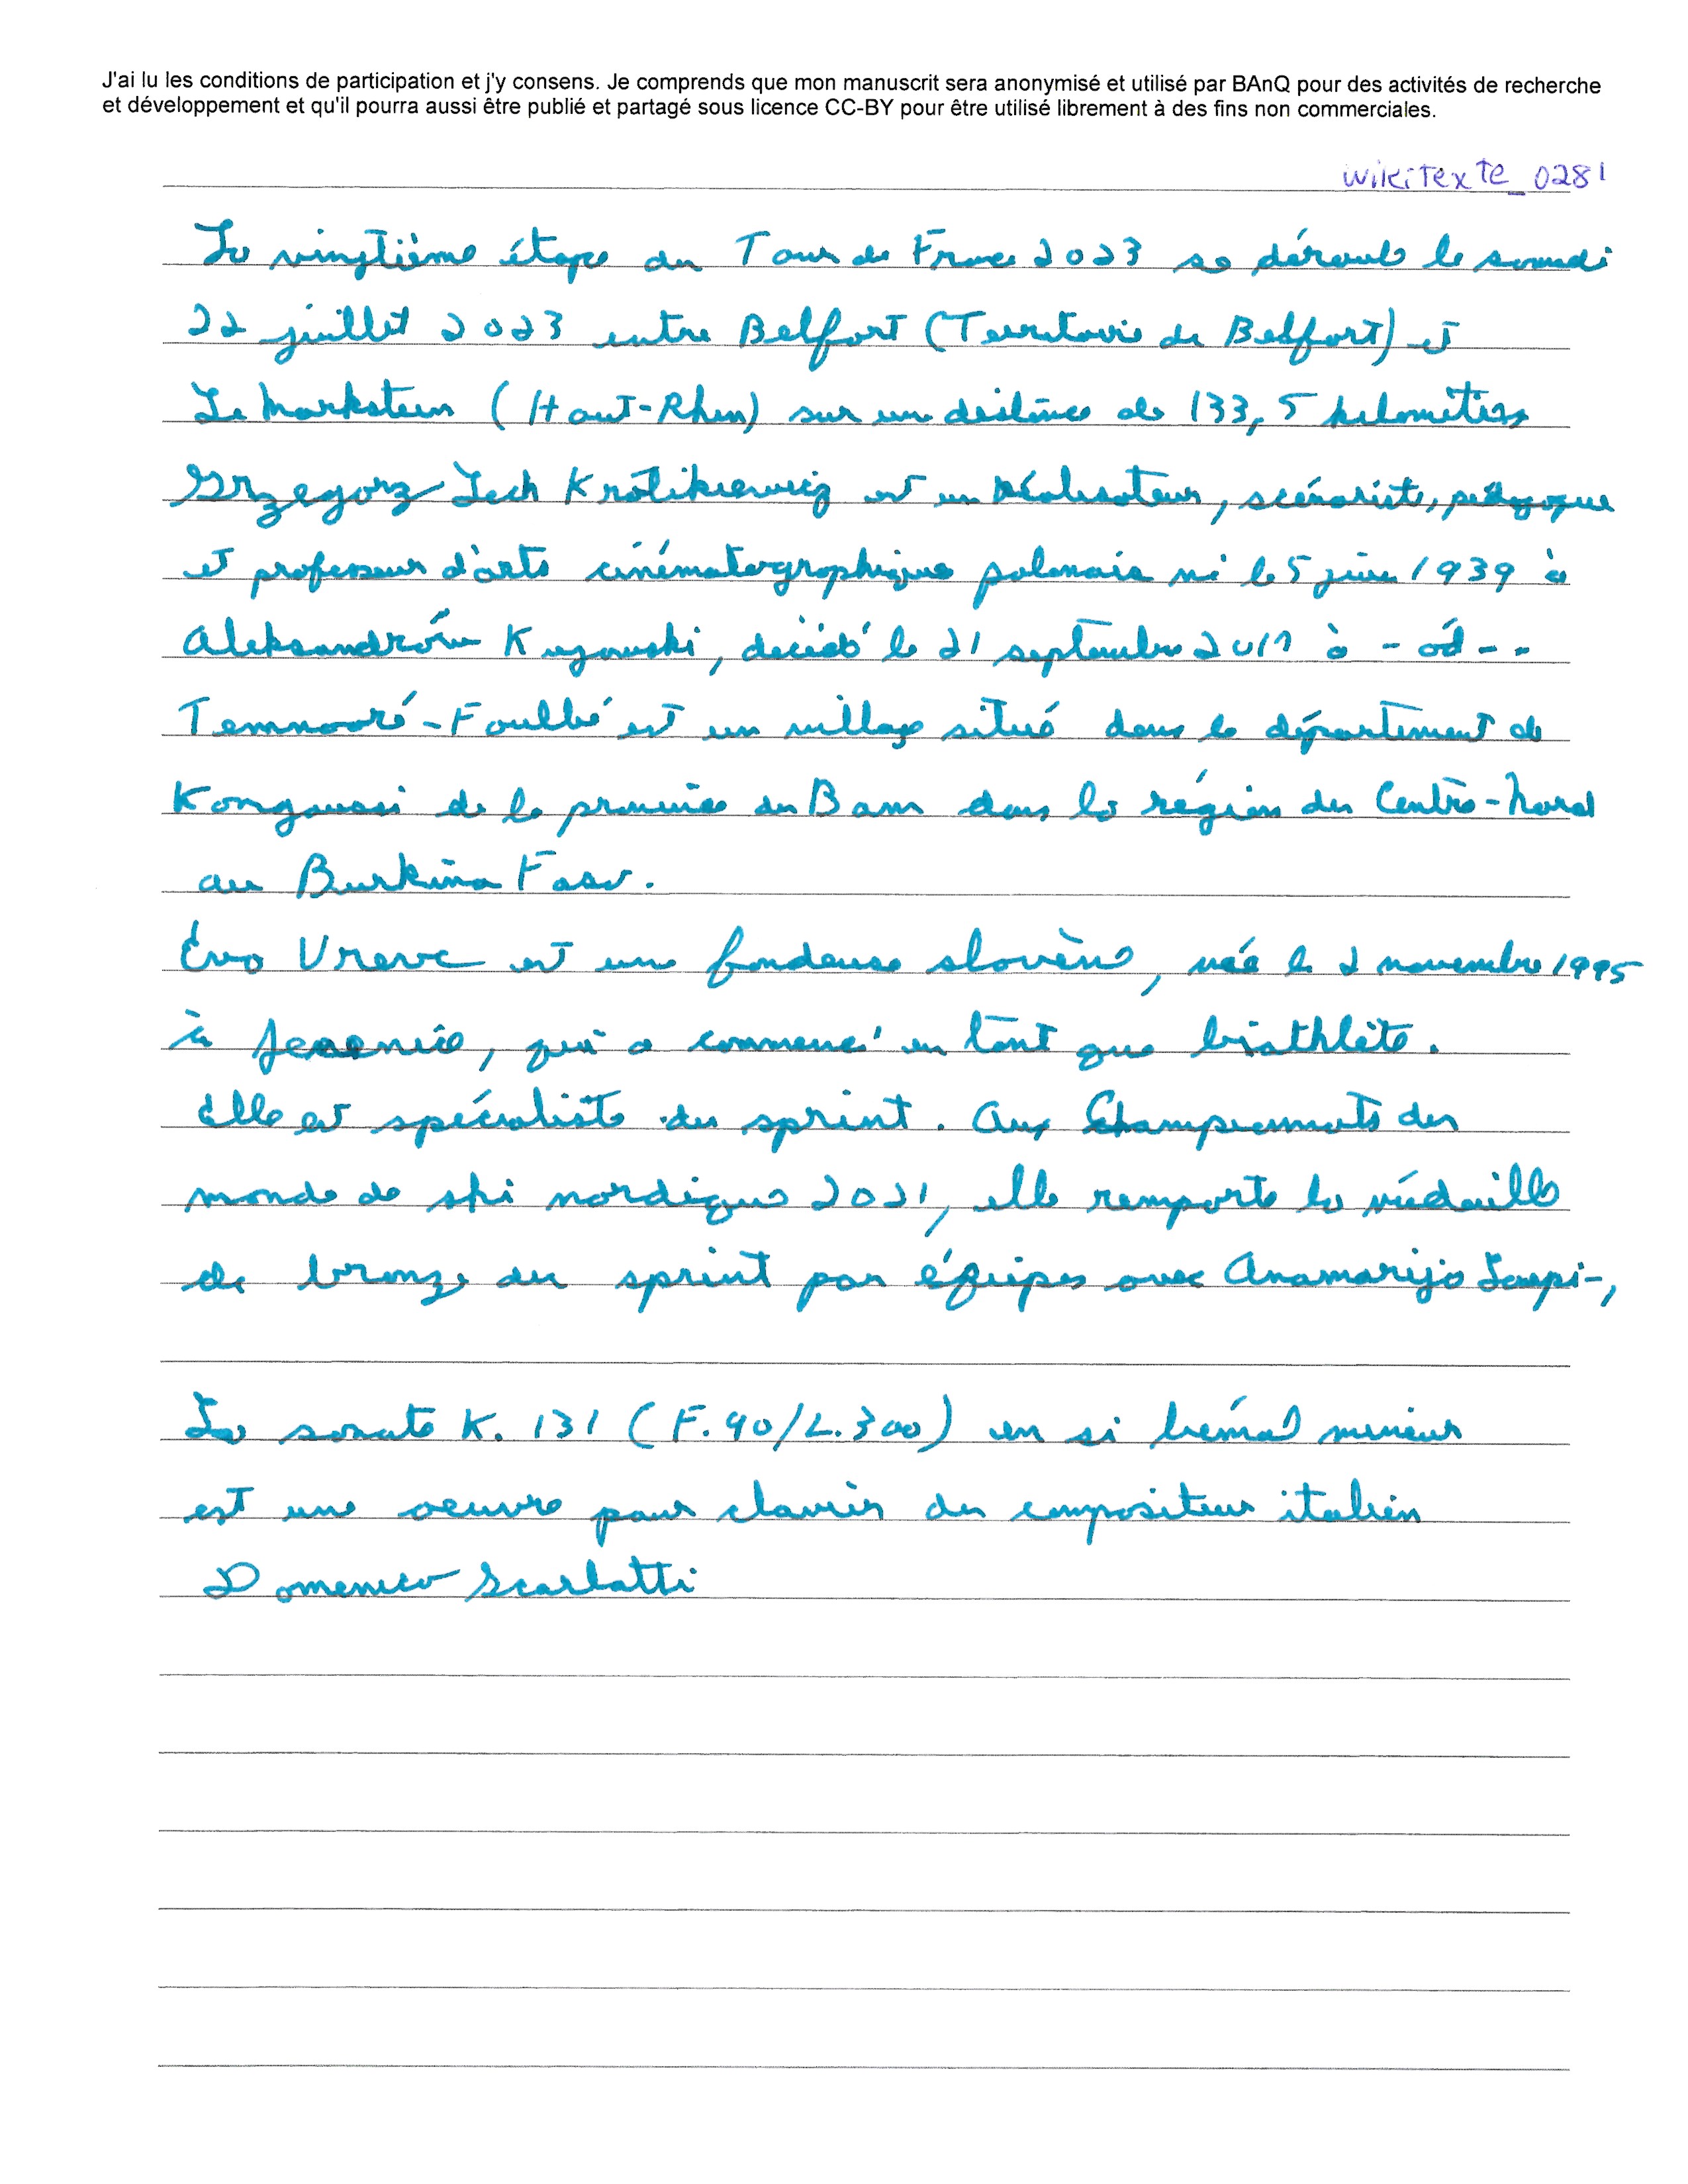 J'ai lu les conditions de participation et j'y consens. Je comprends que mon manuscrit sera anonymisé et utilisé par BAnQ pour des activités de recherche
et développement et qu'il pourra aussi être publié et partagé sous licence CC-BY pour être utilisé librement à des fins non commerciales.
wikitexte_0281
La vingtième étape du Tour de France 2023 se déroule le samedi
22 juillet 2023 entre Belfort (Territoire de Belfort) et
Le Markstein (Haut-Rhin) sur une distance de 133,5 kilomètres
Grzegorz Lech Królikiewicz est un réalisateur, scénariste, pédagogue
et professeur d'arts cinématographique polonais né le 5 juin 1939 à
Aleksandrów Kujawski, décédé le 21 septembre 2017 à -ód--
Temnaoré-Foulbé est un village situé dans le département de
Kongoussi de la province du Bam dans la région du Centre-Nord
au Burkina Faso.
Eva Urevc est une fondeuse slovène, née le 2 novembre 1995
à Jesenice, qui a commencé en tant que biathlète.
Elle est spécialiste du sprint. Aux Championnats du
monde de ski nordique 2021, elle remporte la médaille
de bronze du sprint par équipes avec Anamarija Lampi-,
La sonate K. 131 (F.90/L.300) en si bémol mineur
est une oeuvre pour clavier du compositeur italien
Domenico Scarlatti